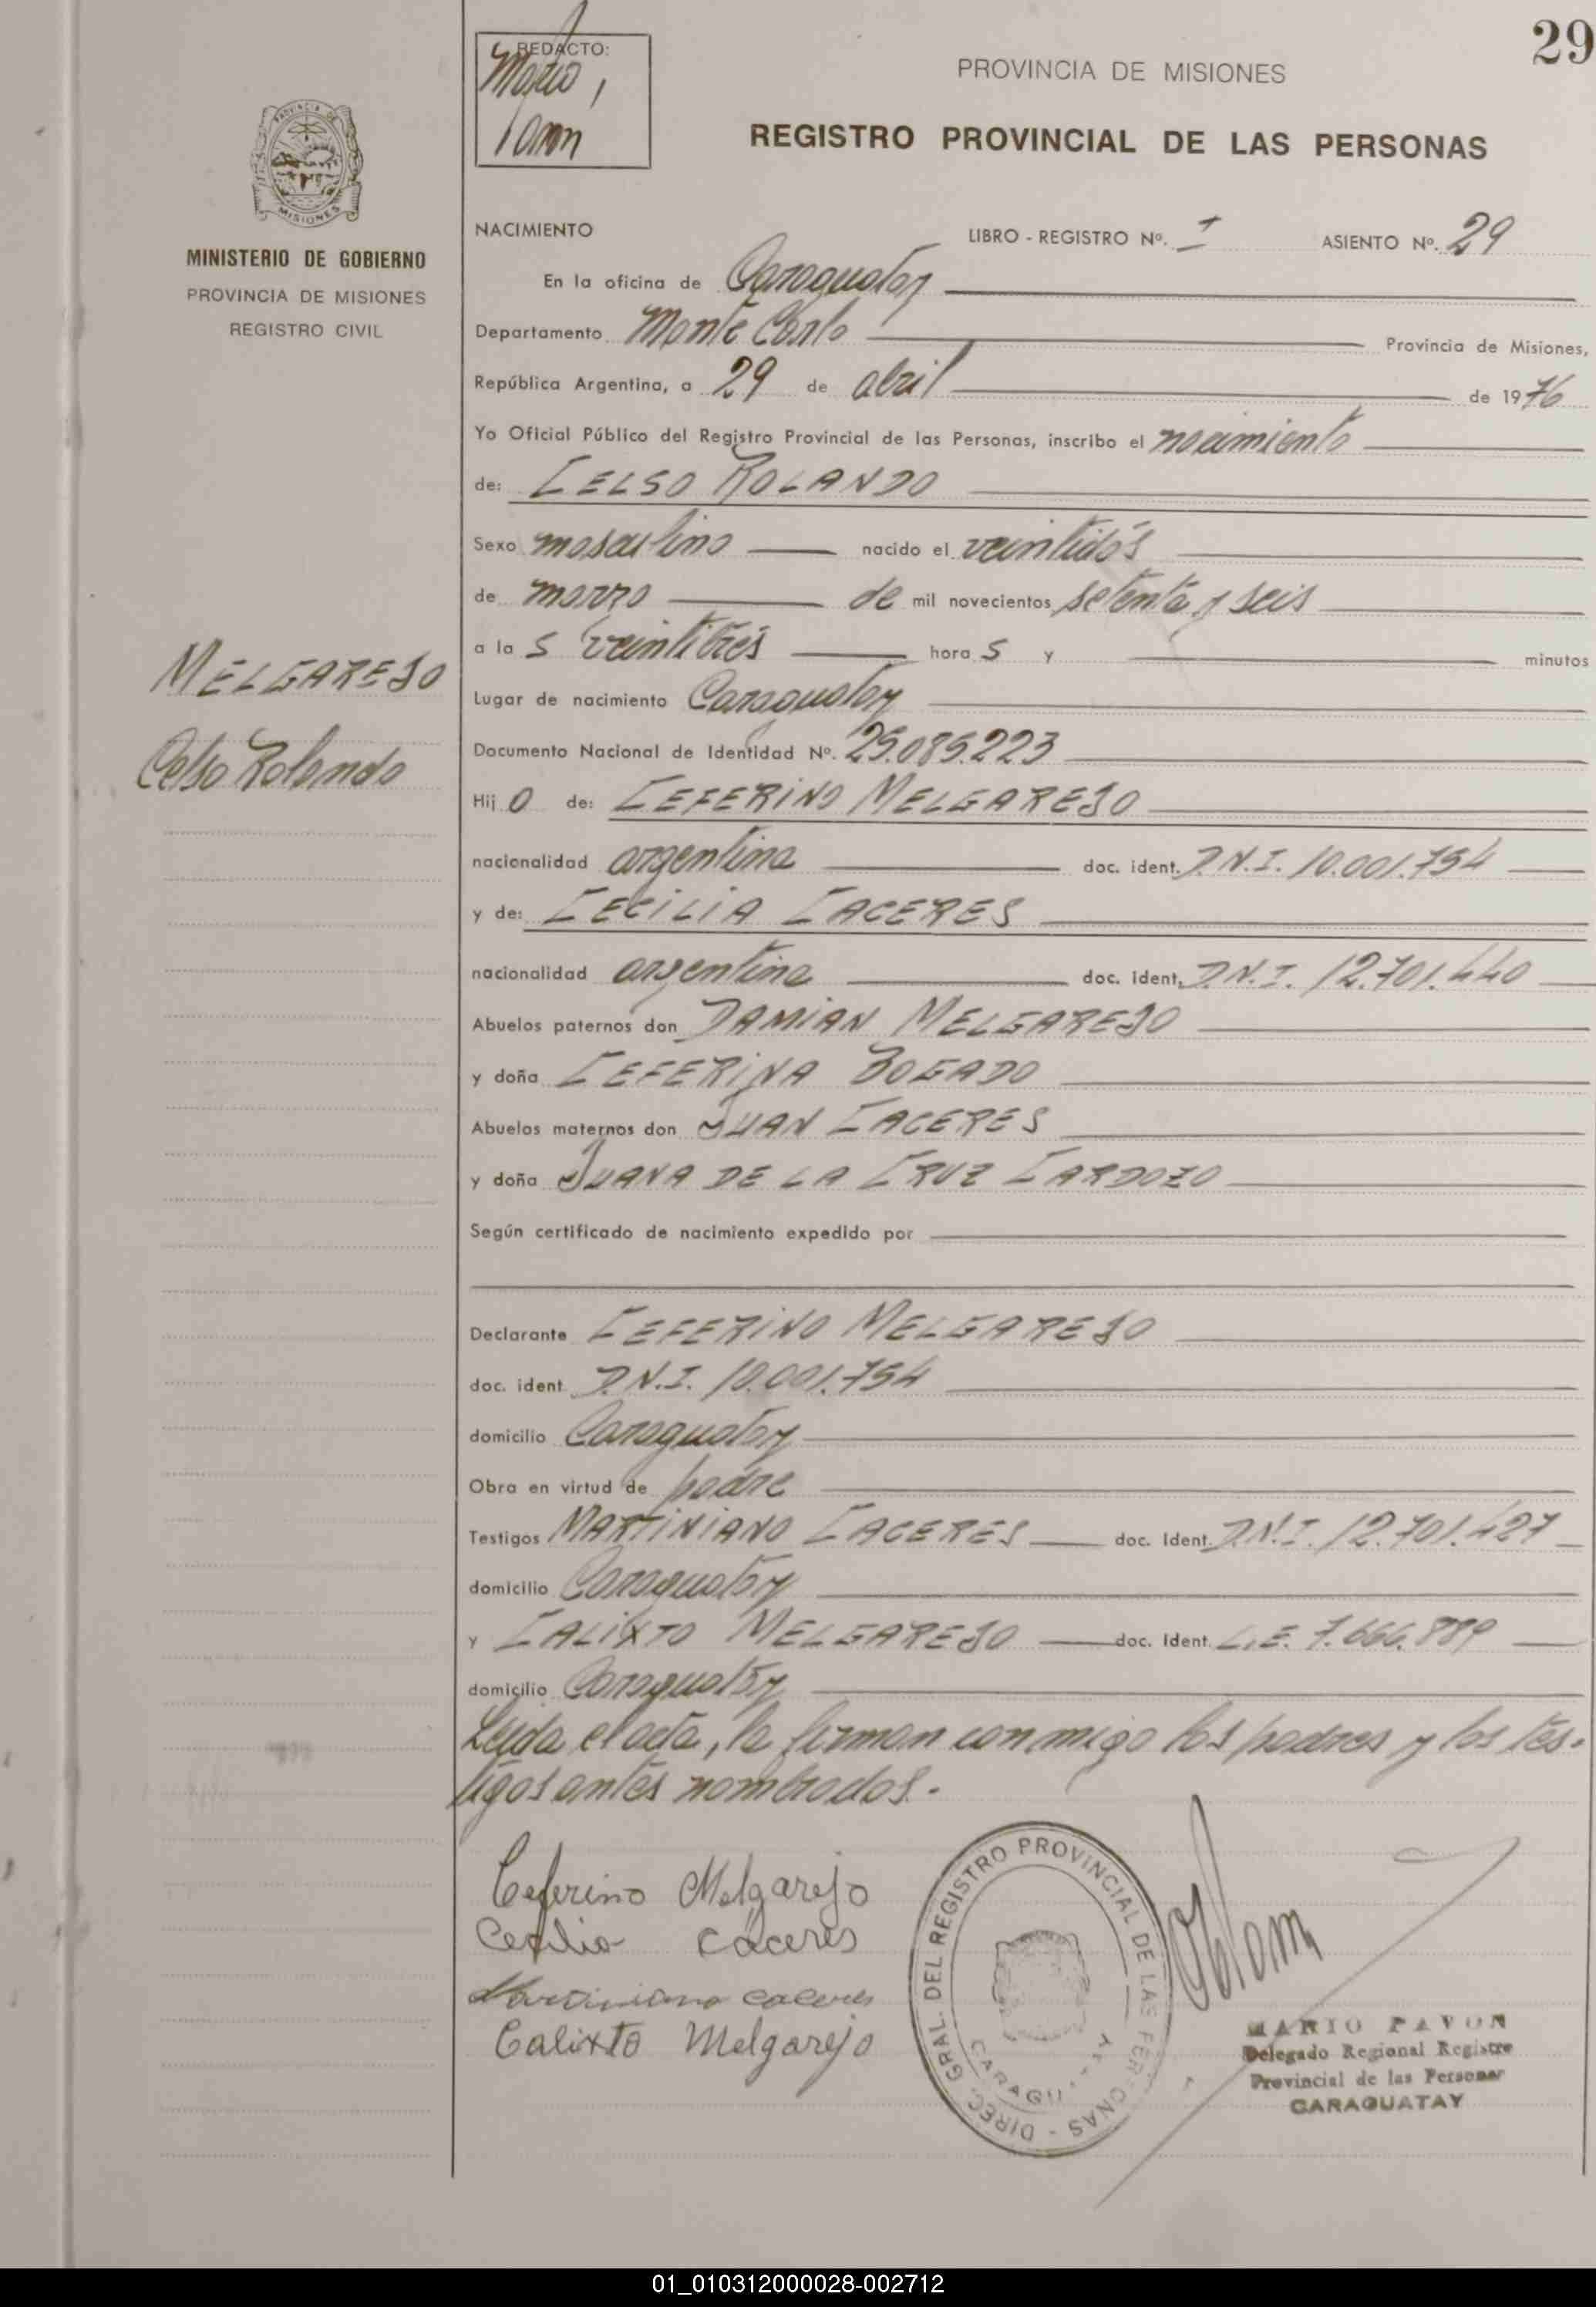 29
REDACTO:
Mario
PROVINCIA DE MISIONES
REGISTRO PROVINCIAL DE LAS PERSONAS
PROVINCIA DE
MISIONES
MINISTERIO DE GOBIERNO
PROVINCIA DE MISIONES
REGISTRO CIVIL
MELGAREJO
Celso Rolando
NACIMIENTO LIBRO - REGISTRO Nº. I ASIENTO Nº. 29
En la oficina de Caraguatay
Departamento Monte Carlo Provincia de Misiones,
República Argentina, a 29 de abril de 1976
Yo Oficial Público del Registro Provincial de las Personas, inscribo el nacimiento
de: CELSO ROLANDO
Sexo masculino nacido el veintidós
de marzo de mil novecientos setenta y seis
a la s veintitrés hora s y minutos
Lugar de nacimiento Caraguatay
Documento Nacional de Identidad Nº. 25.085.223
Hij o de: CEFERINO MELGAREJO
nacionalidad argentina doc. ident. D.N.I. 10.001.754
y de: CECILIA CACERES
nacionalidad argentina doc. ident. D.N.I. 12.701.440
Abuelos paternos don DAMIAN MELGAREJO
y doña CEFERINA BOGADO
Abuelos maternos don JUAN CACERES
y doña JUANA DE LA CRUZ CARDOZO
Según certificado de nacimiento expedido por
Declarante CEFERINO MELGAREJO
doc. ident. D.N.I. 10.001.754
domicilio Caraguatay
Obra en virtud de padre
Testigos MARTINIANO CACERES doc. Ident. D.N.I. 12.701.427
domicilio Caraguatay
y CALIXTO MELGAREJO doc. Ident. L.E. 7.666.889
domicilio Caraguatay
Leida el acta, la firman conmigo los padres y los tes-
tigos antes nombrados.-
Ceferino Melgarejo
Cecilia Cáceres
Martiniano caceres
Calixto Melgarejo
DIREC. GRAL. DEL REGISTRO PROVINCIAL DE LAS PERSONAS -
MARIO PAVON
Delegado Regional Registro
Provincial de las Personas
CARAGUATAY
01_010312000028-002712